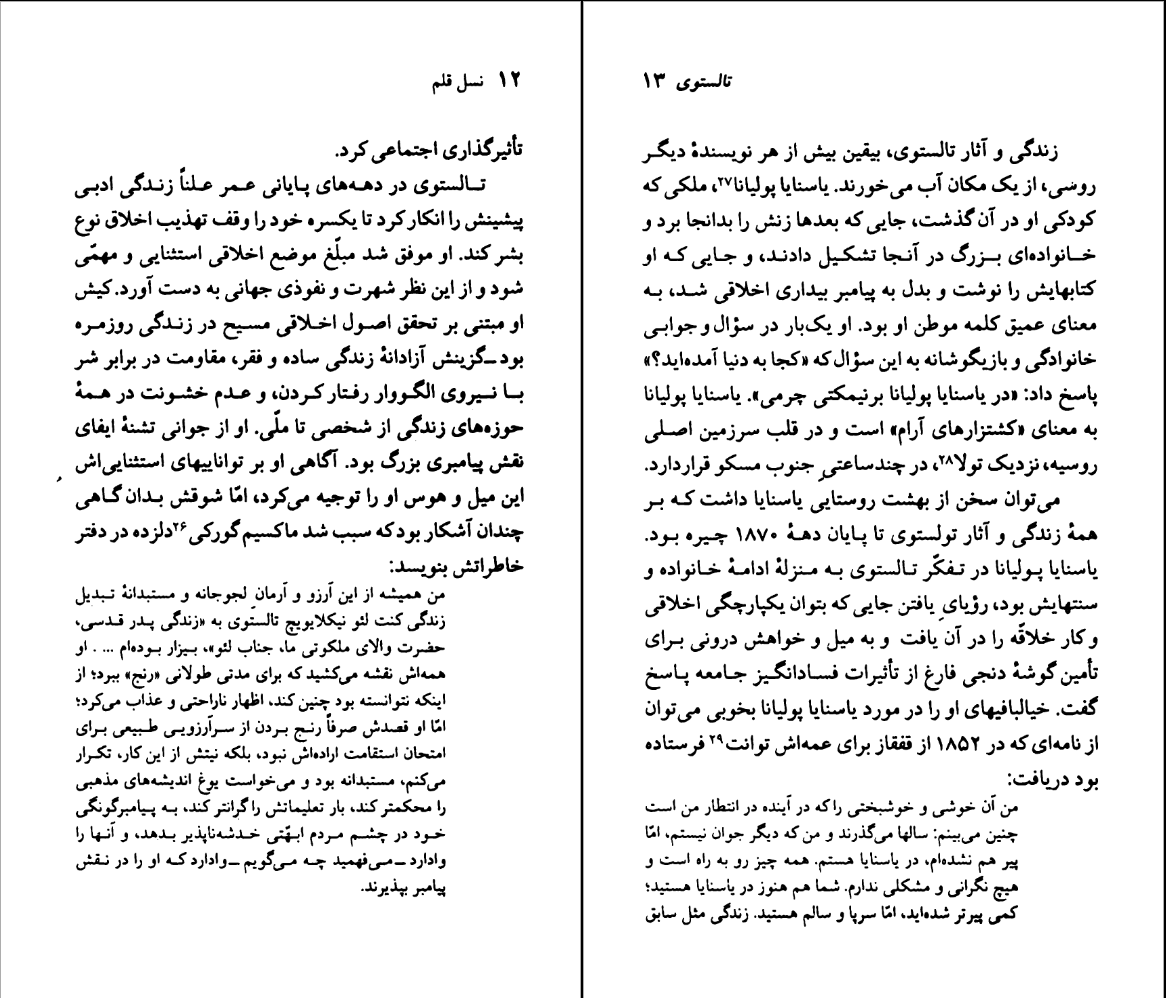 ۱۲ نسل قلم
تأثیرگذاری اجتماعی کرد.
تالستوی در دهه‌های پایانی عمر علناً زندگی ادبی
پیشینش را انکار کرد تا یکسره خود را وقف تهذیب اخلاق نوع
بشر کند. او موفق شد مبلّغ موضع اخلاقی استثنایی و مهمّی
شود و از این نظر شهرت و نفوذی جهانی به دست آورد. کیش
او مبتنی بر تحقق اصول اخلاقی مسیح در زندگی روزمره
بود ــ گزینش آزادانهٔ زندگی ساده و فقر، مقاومت در برابر شر
با نیروی الگووار رفتار کردن، و عدم خشونت در همهٔ
حوزه‌های زندگی از شخصی تا ملّی. او از جوانی تشنهٔ ایفای
نقش پیامبری بزرگ بود. آگاهی او بر تواناییهای استثنایی‌اش
این میل و هوس او را توجیه می‌کرد، امّا شوقش بدان گاهی
چندان آشکار بود که سبب شد ماکسیم گورکی۲۶ دلزده در دفتر
خاطراتش بنویسد:
من همیشه از این آرزو و آرمانِ لجوجانه و مستبدانهٔ تبدیل
زندگی کنت لئو نیکلایویچ تالستوی به «زندگی پدر قدسی،
حضرت والای ملکوتی ما، جناب لئو»، بیزار بوده‌ام ... . او
همه‌اش نقشه می‌کشید که برای مدتی طولانی «رنج» ببرد؛ از
اینکه نتوانسته بود چنین کند، اظهار ناراحتی و عذاب می‌کرد؛
امّا او قصدش صرفاً رنج بردن از سرآرزویی طبیعی برای
امتحان استقامت اراده‌اش نبود، بلکه نیتش از این کار، تکرار
می‌کنم، مستبدانه بود و می‌خواست یوغ اندیشه‌های مذهبی
را محکمتر کند، بار تعلیماتش را گرانتر کند، به پیامبرگونگی
خود در چشم مردم ابهّتی خدشه‌ناپذیر بدهد، و آنها را
وادارد ــ می‌فهمید چه می‌گویم ــ وادارد که او را در نقش
پیامبر بپذیرند.
تالستوی ۱۳
زندگی و آثار تالستوی، بیقین بیش از هر نویسندهٔ دیگر
روضی، از یک مکان آب می‌خورند. یاسنایا پولیانا۲۷، ملکی که
کودکی او در آن گذشت، جایی که بعدها زنش را بدانجا برد و
خانواده‌ای بزرگ در آنجا تشکیل دادند، و جایی که او
کتابهایش را نوشت و بدل به پیامبر بیداری اخلاقی شد، به
معنای عمیق کلمه موطن او بود. او یک‌بار در سؤال و جوابی
خانوادگی و بازیگوشانه به این سؤال که «کجا به دنیا آمده‌اید؟»
پاسخ داد: «در یاسنایا پولیانا برنیمکتی چرمی». یاسنایا پولیانا
به معنای «کشتزارهای آرام» است و در قلب سرزمین اصلی
روسیه، نزدیک تولا۲۸، در چندساعتیِ جنوب مسکو قراردارد.
می‌توان سخن از بهشت روستاییِ یاسنایا داشت که بر
همهٔ زندگی و آثار تولستوی تا پایان دههٔ ۱۸۷۰ چیره بود.
یاسنایا پولیانا در تفکّر تالستوی به منزلهٔ ادامهٔ خانواده و
سنتهایش بود، رؤیایِ یافتن جایی که بتوان یکپارچگی اخلاقی
و کار خلاقّه را در آن یافت و به میل و خواهش درونی برای
تأمین گوشهٔ دنجی فارغ از تأثیرات فسادانگیز جامعه پاسخ
گفت. خیالبافیهای او را در مورد یاسنایا پولیانا بخوبی می‌توان
از نامه‌ای که در ۱۸۵۲ از قفقاز برای عمه‌اش توانت۲۹ فرستاده
بود دریافت:
من آن خوشی و خوشبختی را که در آینده در انتظار من است
چنین می‌بینم: سالها می‌گذرند و من که دیگر جوان نیستم، امّا
پیر هم نشده‌ام، در یاسنایا هستم. همه چیز رو به راه است و
هیچ نگرانی و مشکلی ندارم. شما هم هنوز در یاسنایا هستید؛
کمی پیرتر شده‌اید، امّا سرپا و سالم هستید. زندگی مثل سابق